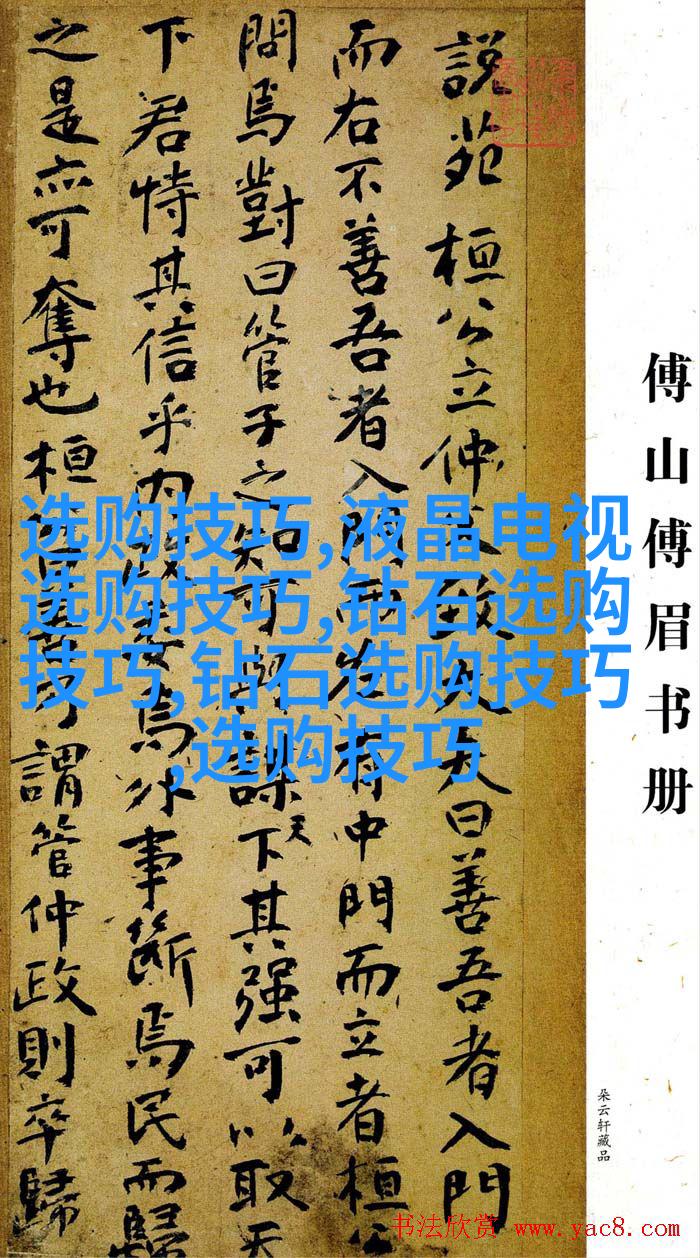 傅山傅眉书册
說苑桓公立仲父致大夫曰善吾者入門
而右不善吾者入門而左有中門而立者桓公
問焉對曰管子之知可與謀天下其强可以取天
下君恃其信乎內政委焉外事斷焉民而歸
之是亦可奪也桓公曰善乃謂管仲政則卒歸
选购技巧,液晶电视
选购技巧,钻石选购
技巧,钻石选购技巧
,选购技巧
朵云轩藏品
书法欣赏 www.yac8.com